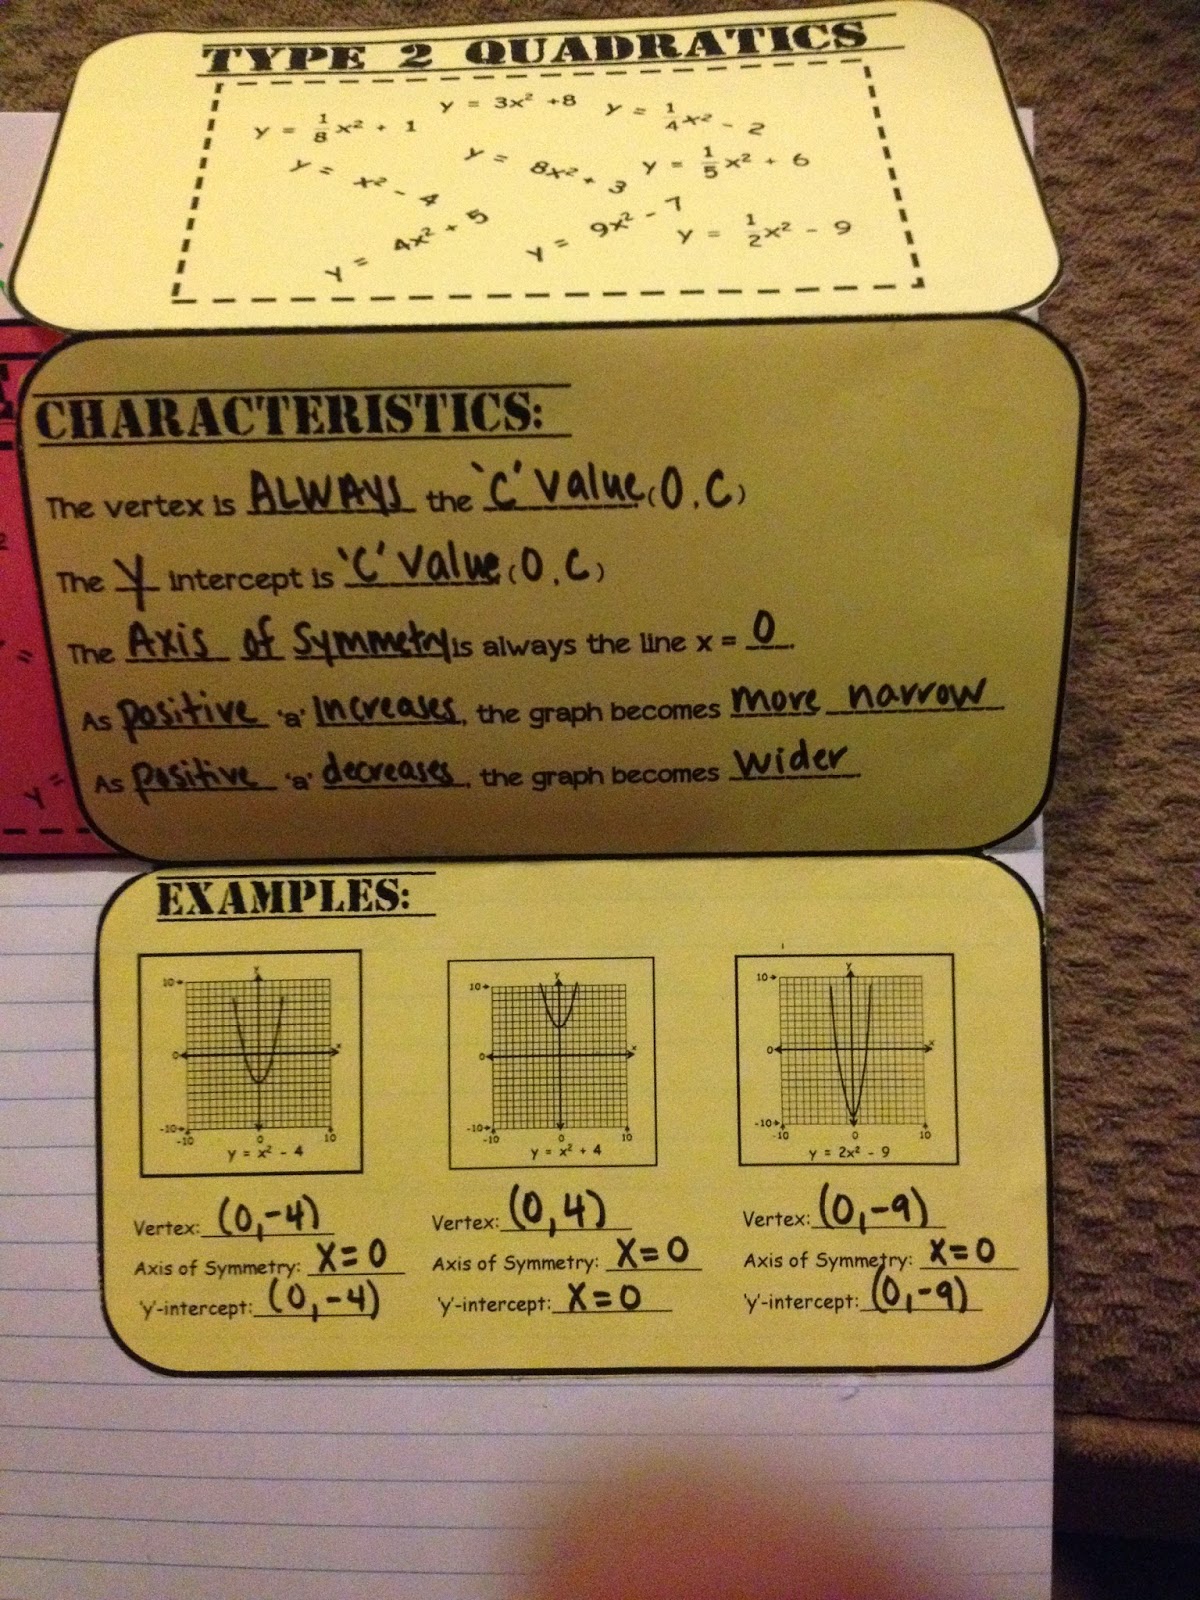 TYPE 2 QUADRATICS
y = 1/8 x² + 1
y = 3x² + 8
y = 1/4 x² - 2
y = x² - 4
y = 8x² + 3
y = 1/5 x² + 6
y = 4x² + 5
y = 9x² - 7
y = 1/2 x² - 9
CHARACTERISTICS:
The vertex is ALWAYS the 'C' Value (0, C)
The Y intercept is 'C' Value (0, C)
The Axis of Symmetry is always the line x = 0.
As positive 'a' Increases, the graph becomes more narrow
As positive 'a' decreases, the graph becomes wider
EXAMPLES:
y
10
0
x
-10
-10 0 10
y = x² - 4
y
10
0
x
-10
-10 0 10
y = x² + 4
y
10
0
x
-10
-10 0 10
y = 2x² - 9
Vertex: (0,-4)
Axis of Symmetry: X=0
'y'-intercept: (0,-4)
Vertex: (0,4)
Axis of Symmetry: X=0
'y'-intercept: X=0
Vertex: (0,-9)
Axis of Symmetry: X=0
'y'-intercept: (0,-9)